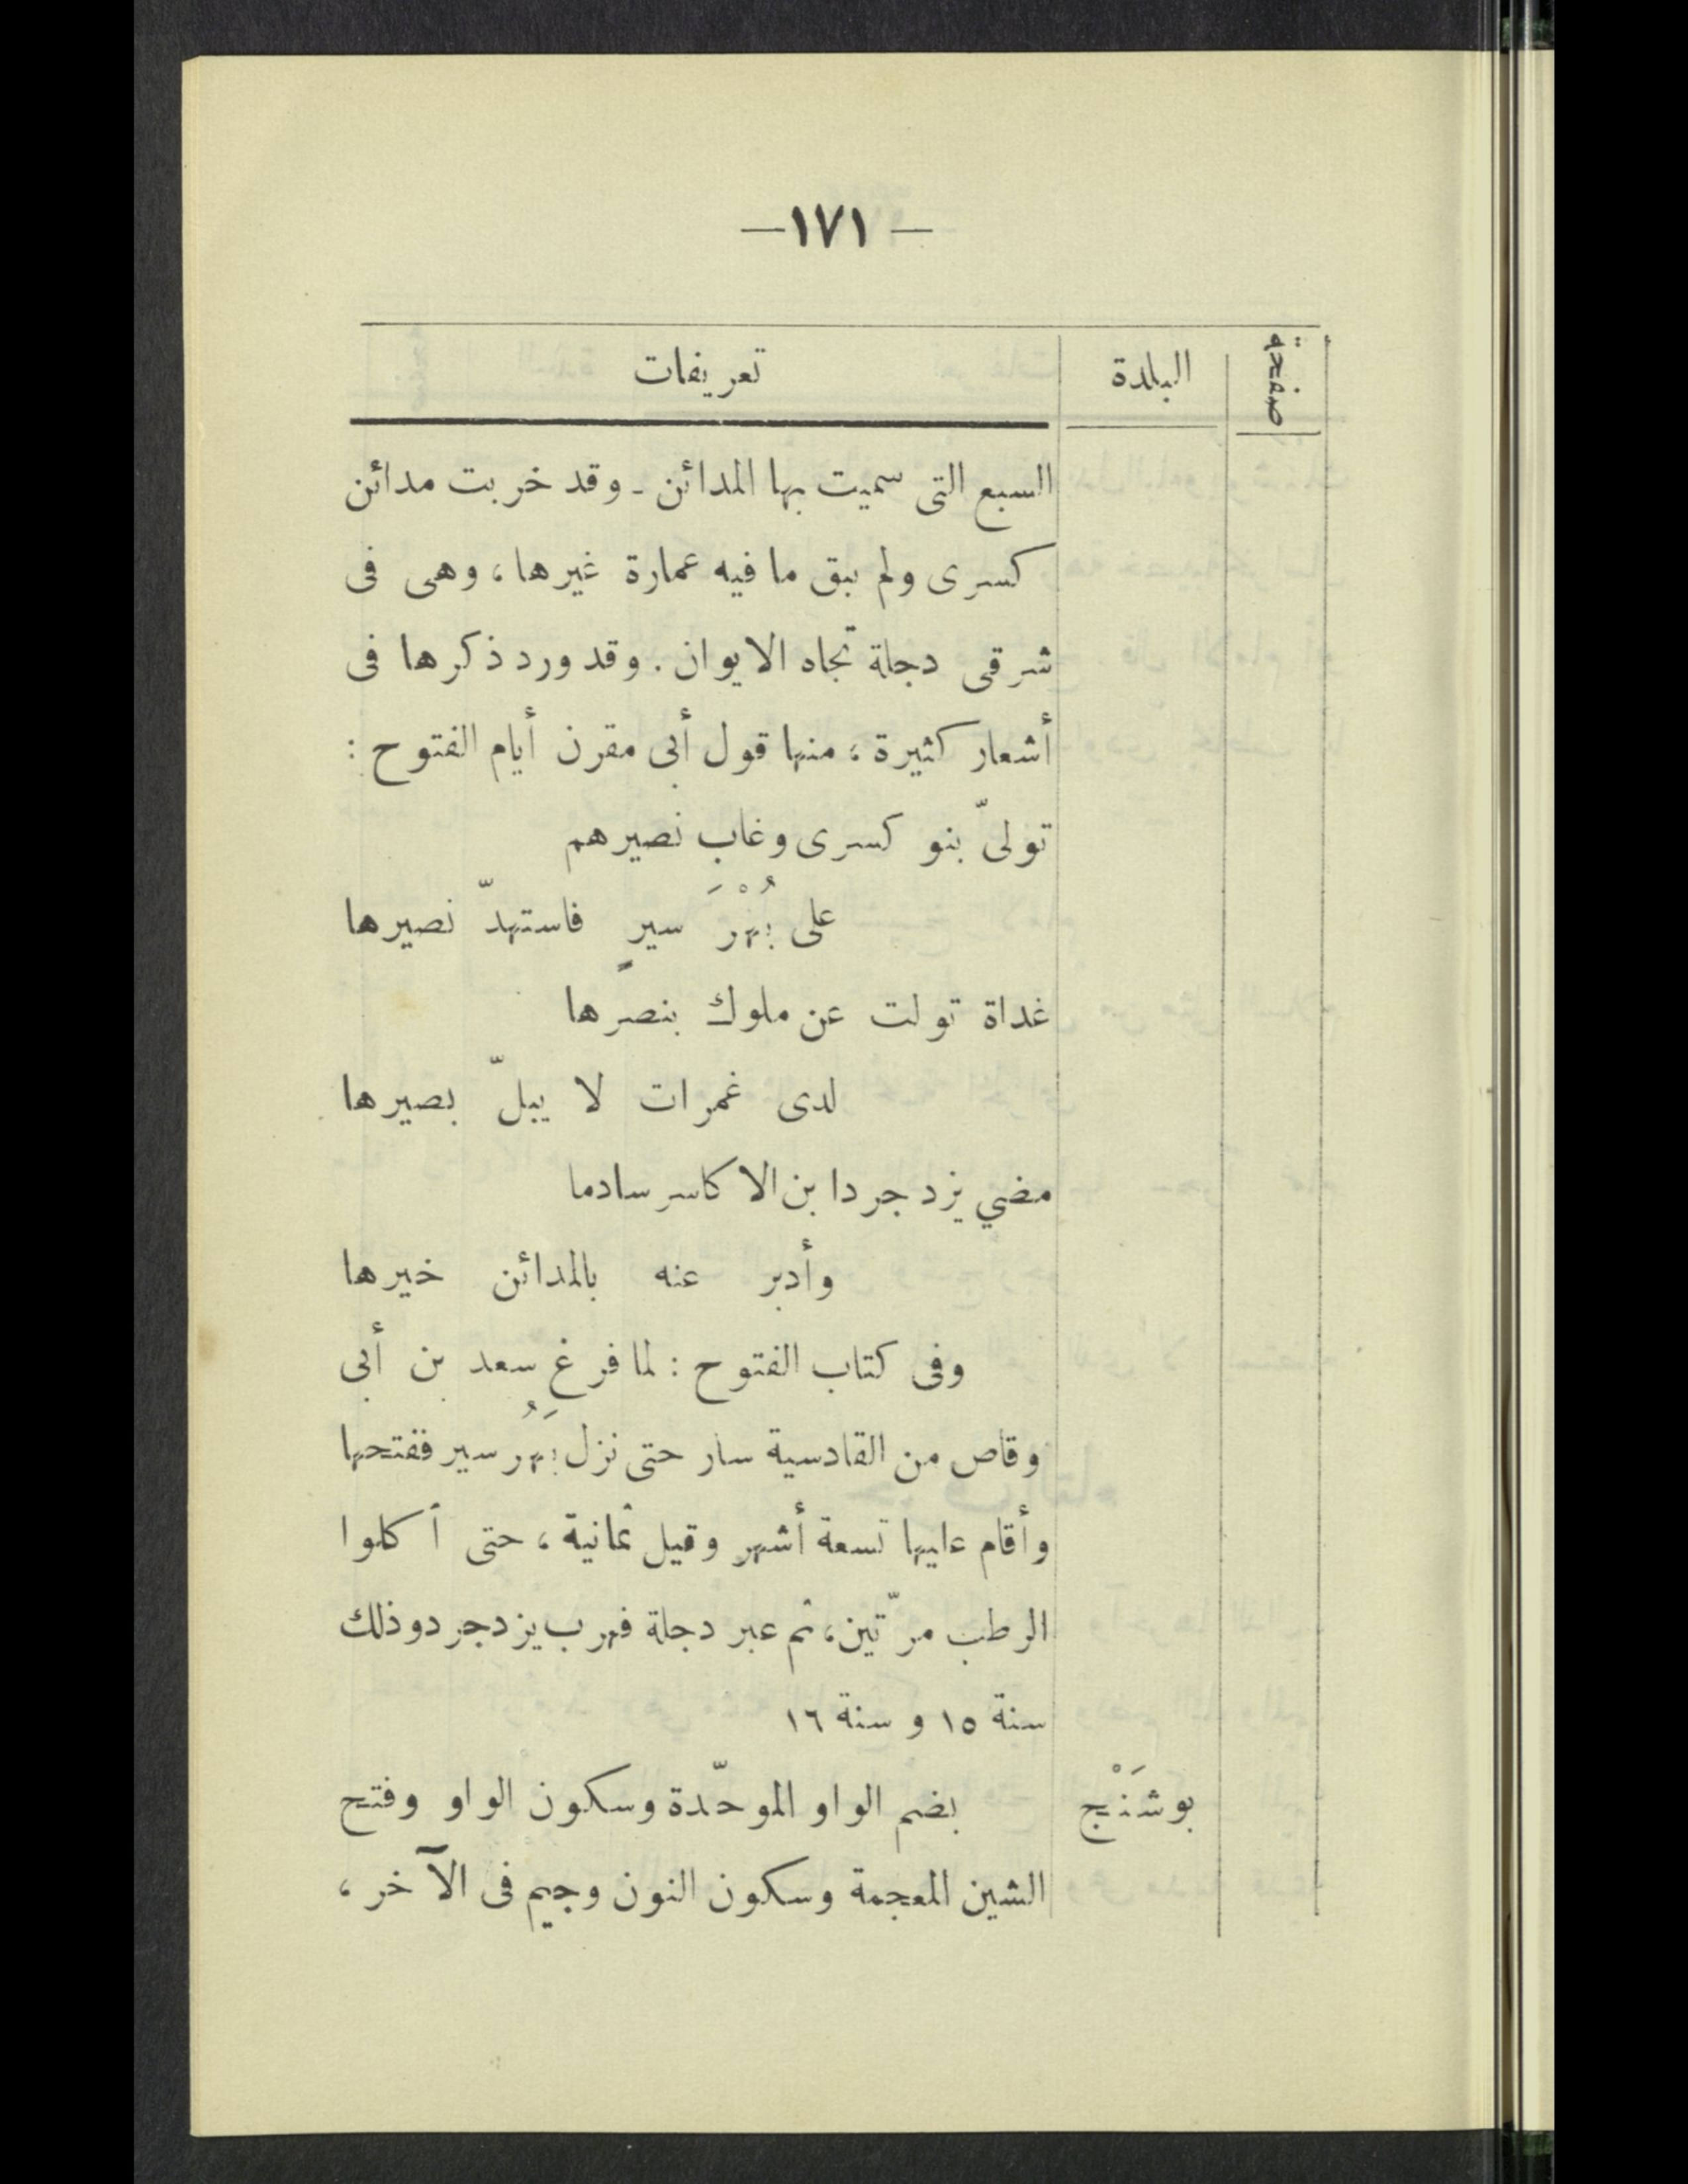 —١٧١—
صفحة البلدة تعريفات
السبع التى سميت بها المدائن ـ وقد خربت مدائن
كسرى ولم يبق ما فيه عمارة غيرها، وهى فى
شرقى دجلة تجاه الايوان. وقد ورد ذكرها فى
أشعار كثيرة؛ منها قول أبى مقرن أيام الفتوح:
تولىّ بنو كسرى وغاب نصيرهم
على بُهْرَ سيرٍ فاستهدّ نصيرها
غداة تولت عن ملوك بنصرها
لدى غمرات لا يبلّ بصيرها
مضي يزدجرد ابن الاكاسر سادما
وأدبر عنه بالمدائن خيرها
وفى كتاب الفتوح: لما فرغ سعد بن أبى
وقاص من القادسية سار حتى نزل بَهُرسير ففتحها
وأقام عليها تسعة أشهر وقيل ثمانية، حتى أكلوا
الرطب مرّتين، ثم عبر دجلة فهرب يزدجرد وذلك
سنة ١٥ و سنة ١٦
بوشَنْج بضم الواو الموحّدة وسكون الواو وفتح
الشين المعجمة وسكون النون وجيم فى الآخر،